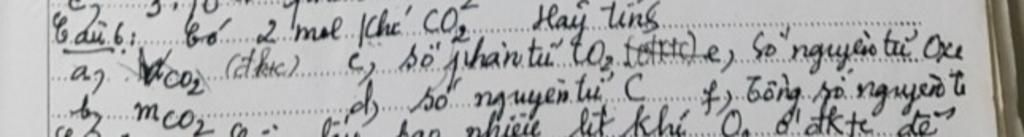 Câu 6: Có 2 mol khí CO2 Hãy tính
a, VCO2 (đktc) c, số phân tử CO2 (đktc) e, Số nguyên tử Oxi
b, mCO2 d, số nguyên tử C f, Tổng số nguyên tử
nhiêu lít khí O2 ở đktc để